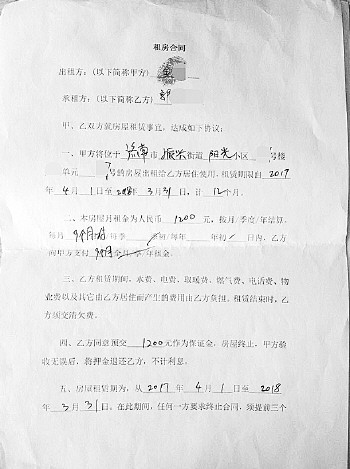 租房合同
出租方：(以下简称甲方)
承租方：(以下简称乙方) 郭
甲、乙双方就房屋租赁事宜，达成如下协议：
一、甲方将位于 市 振兴 街道 阳光 小区 号楼
单元 号的房屋出租给乙方居住使用，租赁期限自 2017
年 4 月 1 日至 2018 年 3 月 31 日，计 12 个月。
二、本房屋月租金为人民币 1200 元，按月/季度/年结算。
每月 月初/每季 季初/每年 年初 日内，乙方
向甲方支付 全月/季/年租金。
三、乙方租赁期间，水费、电费、取暖费、燃气费、电话费、物
业费以及其它由乙方居住而产生的费用由乙方负担。租赁结束时，乙
方须交清欠费。
四、乙方同意预交 1200 元作为保证金，房屋终止，甲方验
收无误后，将押金退还乙方，不计利息。
五、房屋租赁期为，从 2017 年 4 月 1 日至 2018
年 3 月 31 日。在此期间，任何一方要求终止合同，须提前三个